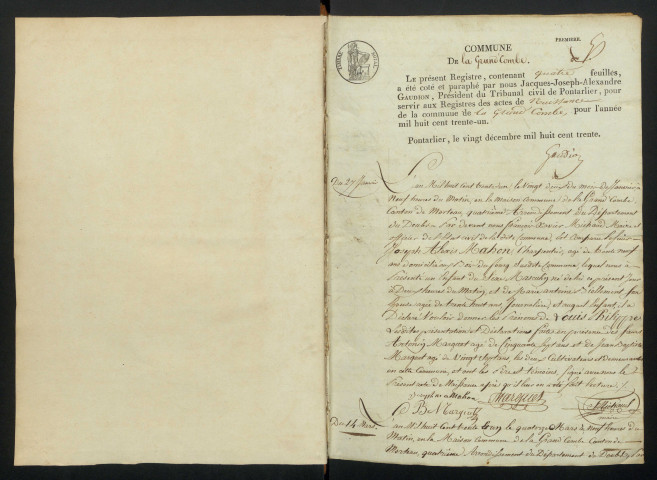 PREMIERE.
COMMUNE
DE la Grand'Combe.
LE présent Registre, contenant quatre feuilles,
a été coté et paraphé par nous Jacques-Joseph-Alexandre
GAUDION, Président du Tribunal civil de Pontarlier, pour
servir aux Registres des actes de Naissance
de la commune de la Grand Combe, pour l'année
mil huit cent trente-un.
Pontarlier, le vingt décembre mil huit cent trente.
Gaudion
Du 27 Janvier
L'an Mil huit cent trente un le vingt du mois de Janvier
Neuf heures du Matin, en la maison Commune de la Grand Combe
Canton de Morteau, quatrième Arrondissement du Département
du Doubs, Par devant nous françois Xavier Maire et
officier de l'Etat civil de la dite Commune, Est Comparu
Joseph Alexis Mahon Charpentier, agé de trente neuf
ans domicilié au dite Commune, lequel nous a
Présenté un Enfant du Sexe Masculin né de
à Deux heures du Matin, et de Marie antoine
agée de trente huit ans, Journalière, et auquel Enfant il a
Déclaré Vouloir donner les Prénoms de Louis Philippe
Lesdites présentation et Déclarations faites en présence des
Antoine Marguet agé de Cinquante Sept ans et de Jean Baptiste
Marguet agé de Vingt Sept ans, les deux Cultivateurs et Demeurant
en cette Commune, et ont les Père et témoins, Signé avec nous le
Présent acte de Naissance après qu'il leur en a été fait lecture.
Joseph Mahon Marguet
J B Marguet
Du 14 Mars.
L'an Mil huit Cent trente un le quatorze Mars à neuf heures du
Matin, en la Maison Commune de la Grand Combe Canton de
Morteau, quatrième Arrondissement du Département du Doubs, Par